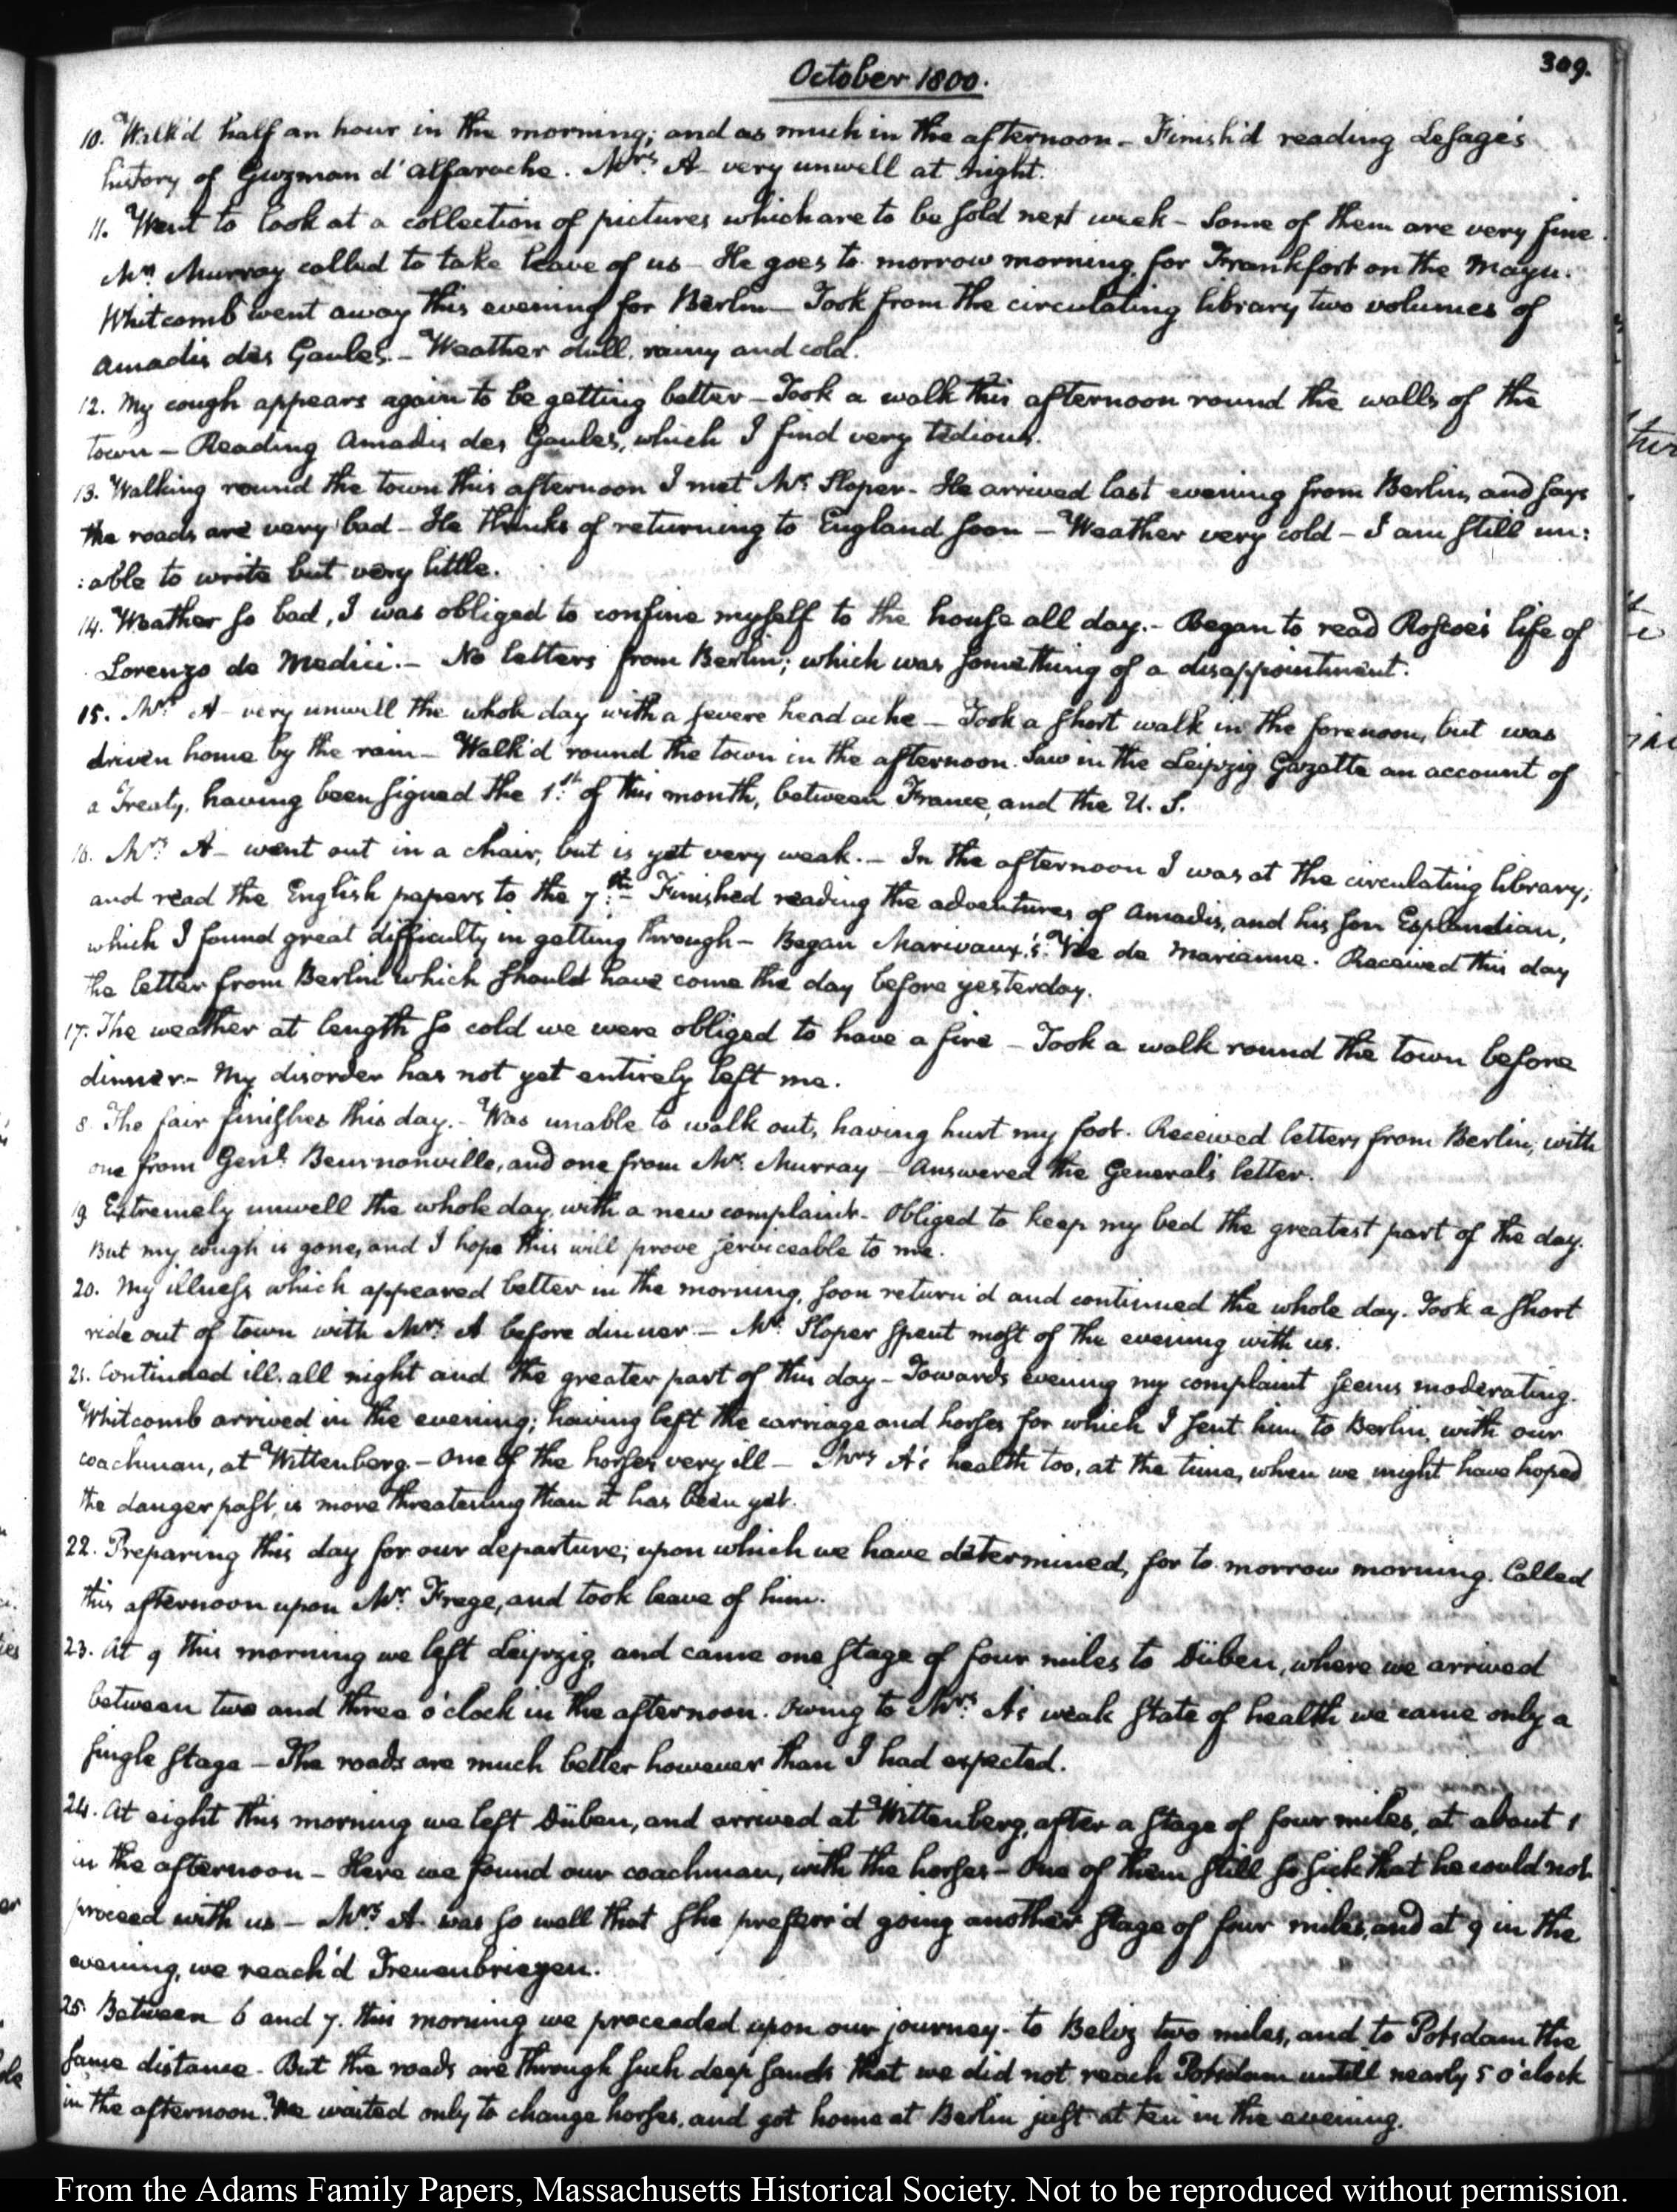 October 1800.
309.
10. Walk'd half an hour in the morning; and as much in the afternoon – Finish'd reading LeSage's
history of Guzman d'Alfarache. Mrs. A– very unwell at night.
11. Went to look at a collection of pictures which are to be sold next week – Some of them are very fine.
Mr. Murray called to take leave of us – He goes to-morrow morning for Frankfort on the Mayn.
Whitcomb went away this evening for Berlin – Took from the circulating library two volumes of
Amadis des Gaules. – Weather dull, rainy and cold.
12. My cough appears again to be getting better – Took a walk this afternoon round the walls of the
town – Reading Amadis des Gaules, which I find very tedious.
13. Walking round the town this afternoon I met Mr. Sloper – He arrived last evening from Berlin, and says
the roads are very bad – He thinks of returning to England soon – Weather very cold – I am still un:
:able to write but very little.
14. Weather so bad, I was obliged to confine myself to the house all day. – Began to read Roscoe's life of
Lorenzo de Medici. – No letters from Berlin; which was something of a disappointment.
15. Mrs. A– very unwell the whole day with a severe head ache – Took a short walk in the forenoon, but was
driven home by the rain – Walk'd round the town in the afternoon. Saw in the Leipzig Gazette an account of
a Treaty, having been signed the 1st. of this month, between France, and the U. S.
16. Mrs. A– went out in a chair, but is yet very weak. – In the afternoon I was at the circulating library;
and read the English papers to the 7th. – Finished reading the adventures of Amadis, and his son Esplandian,
which I found great difficulty in getting through – Began Marivaux's Vie de Marianne. Received this day
the letter from Berlin which should have come the day before yesterday.
17. The weather at length so cold we were obliged to have a fire – Took a walk round the town before
dinner. – My disorder has not yet entirely left me.
8. The fair finishes this day. – Was unable to walk out, having hurt my foot. Received letters from Berlin, with
one from Genl. Beurnonville, and one from Mr. Murray – Answered the General's letter.
19. Extremely unwell the whole day, with a new complaint – Obliged to keep my bed the greatest part of the day.
But my cough is gone, and I hope this will prove serviceable to me.
20. My illness which appeared better in the morning, soon return'd and continued the whole day. Took a short
ride out of town with Mrs. A before dinner – Mr. Sloper spent most of the evening with us.
21. Continued ill, all night and the greater part of this day – Towards evening my complaint seems moderating.
Whitcomb arrived in the evening; having left the carriage and horses for which I sent him to Berlin, with our
coachman, at Wittenberg. – One of the horses very ill – Mrs. A's health too, at the time, when we might have hoped
the danger past, is more threatening than it has been yet.
22. Preparing this day for our departure; upon which we have determined, for to-morrow morning. Called
this afternoon upon Mr. Frege, and took leave of him.
23. At 9 this morning we left Leipzig, and came one stage of four miles to Düben, where we arrived
between two and three o'clock in the afternoon. Owing to Mrs. A's weak state of health we came only a
single stage – The roads are much better however than I had expected.
24. At eight this morning we left Düben, and arrived at Wittenberg, after a stage of four miles, at about 1
in the afternoon – Here we found our coachman, with the horses – One of them still so sick that he could not
proceed with us – Mrs. A. was so well that she preferr'd going another stage of four miles, and at 9 in the
evening, we reach'd Treuenbriezen.
25. Between 6 and 7. this morning we proceeded upon our journey – to Belitz two miles, and to Potsdam the
same distance – But the roads are through such deep sands that we did not reach Potsdam untill nearly 5 o'clock
in the afternoon. We waited only to change horses, and got home at Berlin just at ten in the evening.
From the Adams Family Papers, Massachusetts Historical Society. Not to be reproduced without permission.